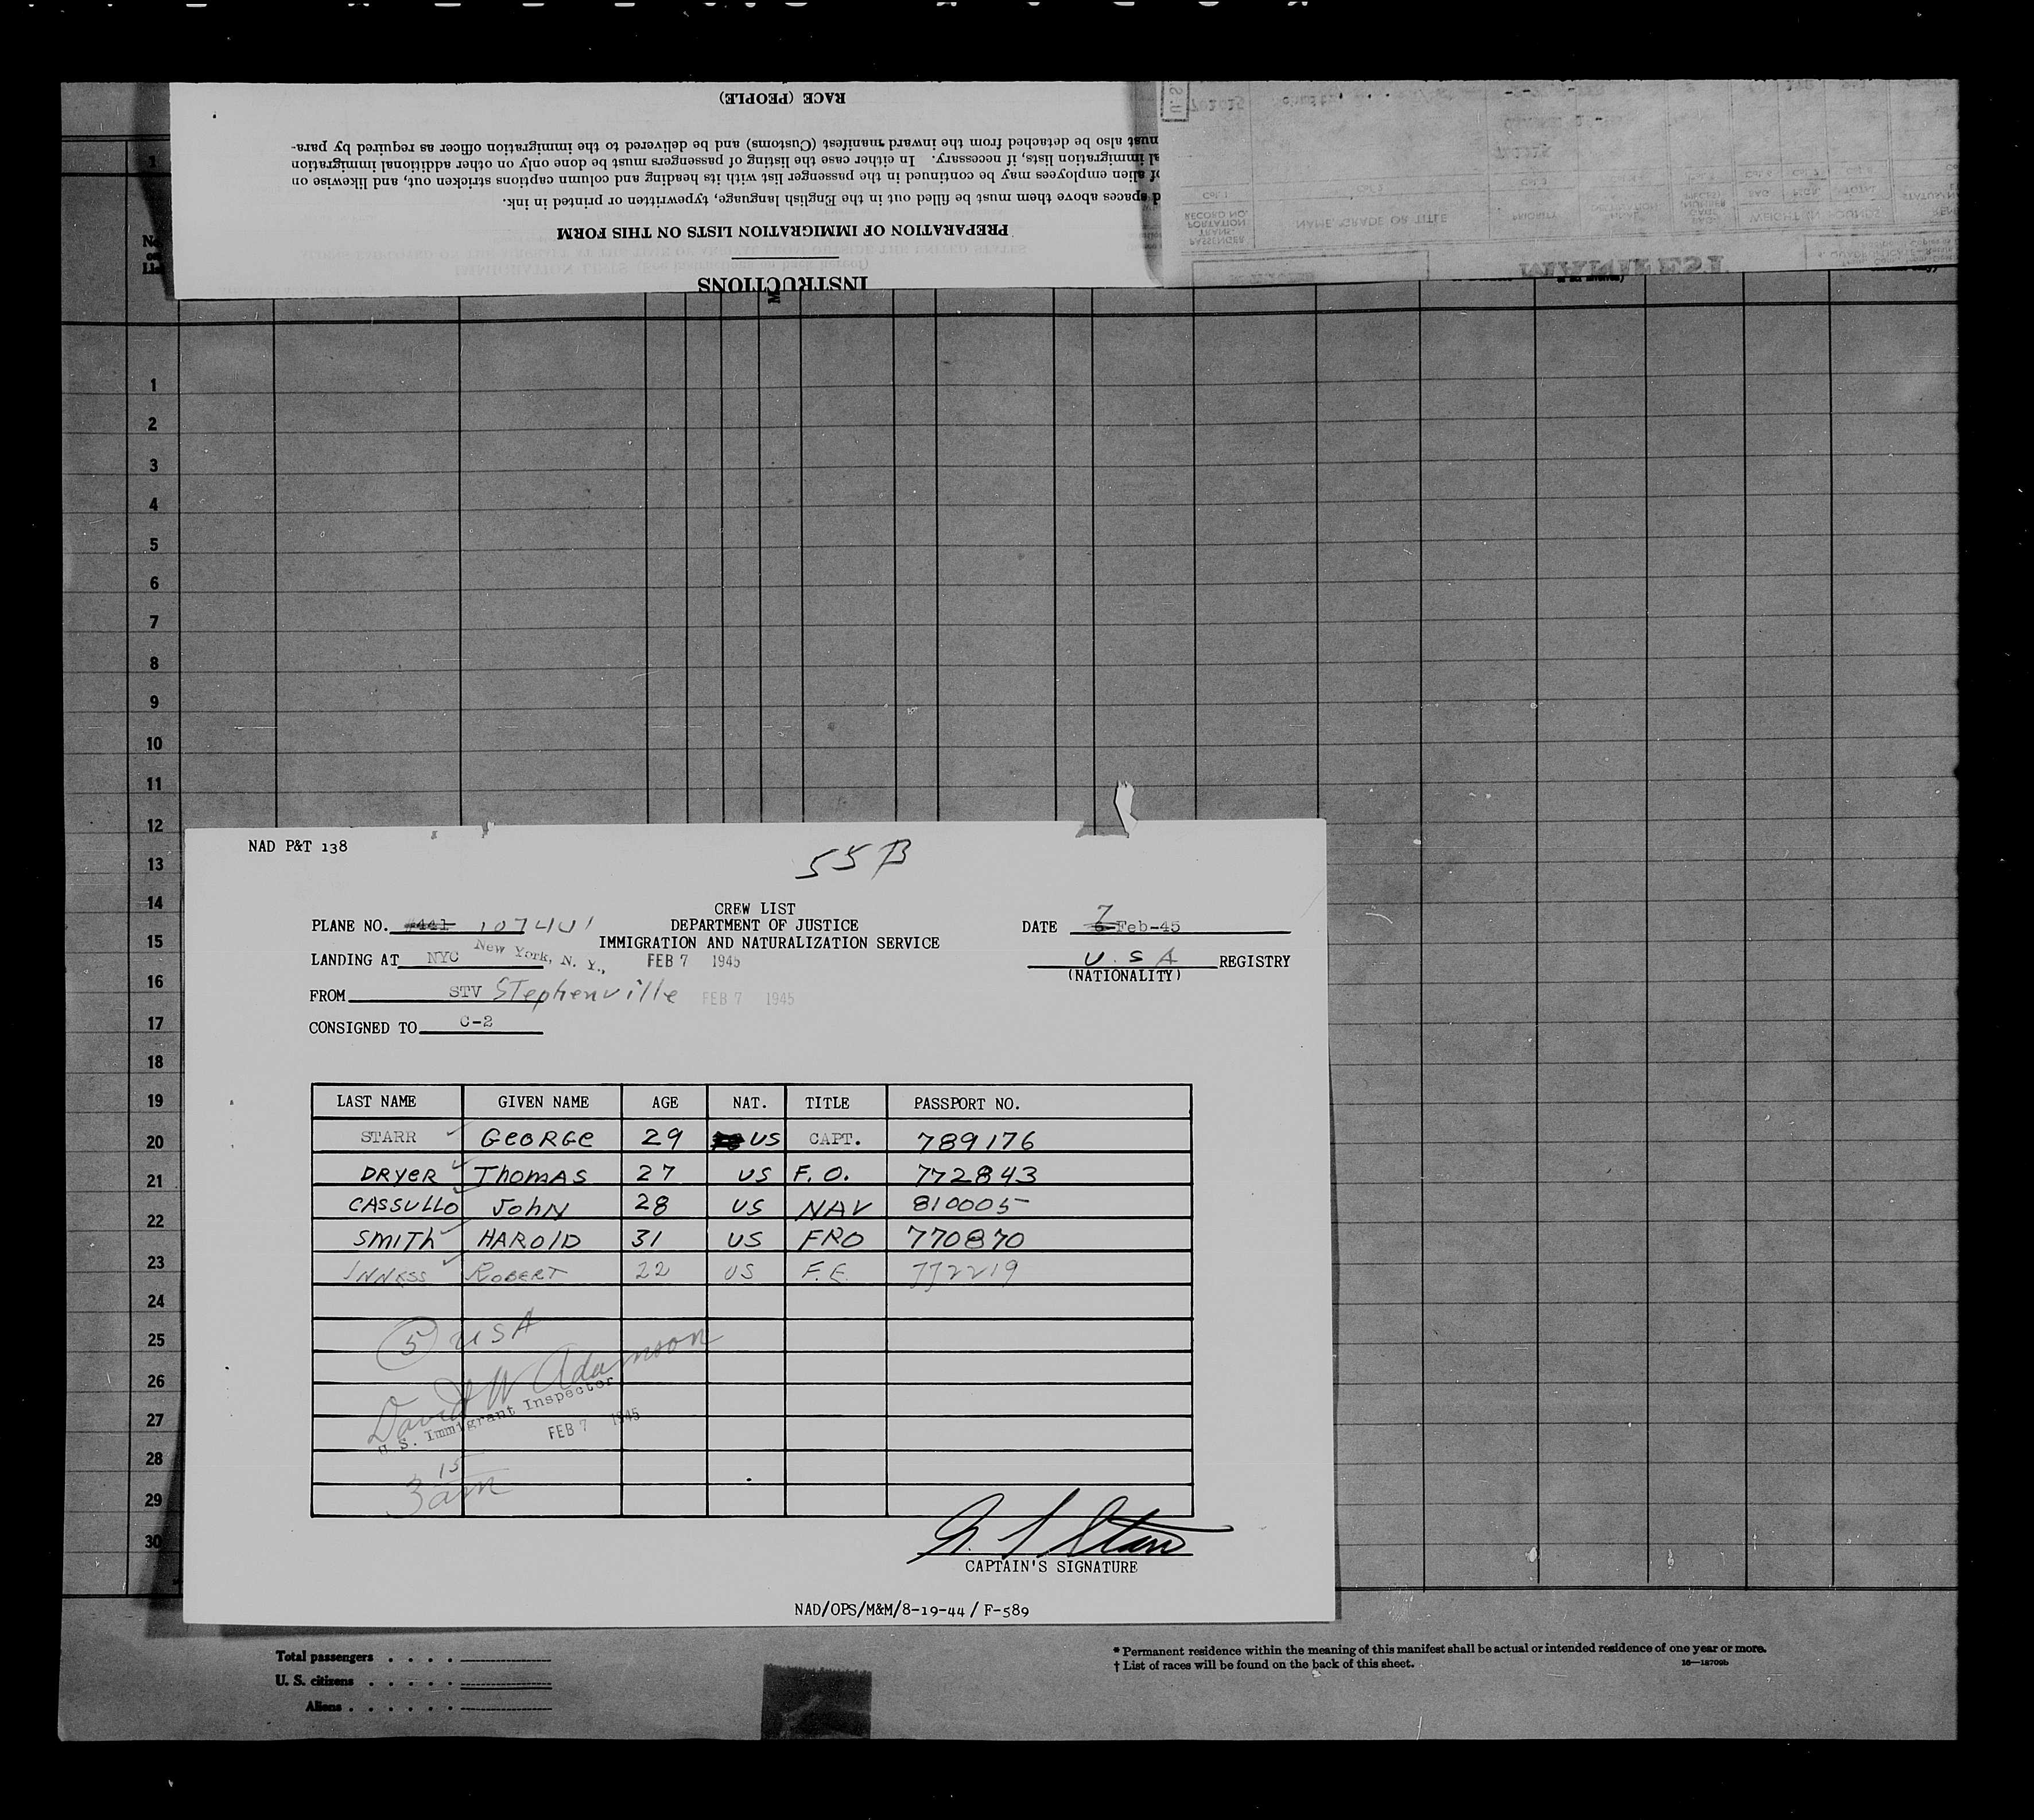 RACE (PEOPLE)
must also be detached from the inward manifest (Customs) and be delivered to the immigration officer as required by para-
al immigration lists, if necessary. In either case the listing of passengers must be done only on other additional immigration
of alien employees may be continued in the passenger list with its heading and column captions stricken out, and likewise on
d spaces above them must be filled out in the English language, typewritten or printed in ink.
PREPARATION OF IMMIGRATION LISTS ON THIS FORM
INSTRUCTIONS
NAME GRADE OR TITLE
PRIORITY
WEIGHT IN POUNDS
MANIFEST
1
2
3
4
5
6
7
8
9
10
11
12
13
14
15
16
17
18
19
20
21
22
23
24
25
26
27
28
29
30
NAD P&T 138
55B
CREW LIST
PLANE NO. #441 107401 DEPARTMENT OF JUSTICE DATE 6 7 Feb-45
IMMIGRATION AND NATURALIZATION SERVICE
LANDING AT NYC New York, N. Y., FEB 7 1945 U.S A REGISTRY
(NATIONALITY)
FROM STV Stephenville FEB 7 1945
CONSIGNED TO C-2
LAST NAME GIVEN NAME AGE NAT. TITLE PASSPORT NO.
STARR GEORGE 29 US CAPT. 789176
DRYER THOMAS 27 US F.O. 772843
CASSULLO JOHN 28 US NAV 810005
SMITH HAROLD 31 US FRO 770870
INNESS ROBERT 22 US F.E. 772219
5 USA
David W Adamson
U.S. Immigrant Inspector
FEB 7 1945
3 15 am
G. S Starr
CAPTAIN'S SIGNATURE
NAD/OPS/M&M/8-19-44/ F-589
Total passengers . . . .
U. S. citizens . . . . .
Aliens . . . . . .
* Permanent residence within the meaning of this manifest shall be actual or intended residence of one year or more.
† List of races will be found on the back of this sheet.
16—18709b